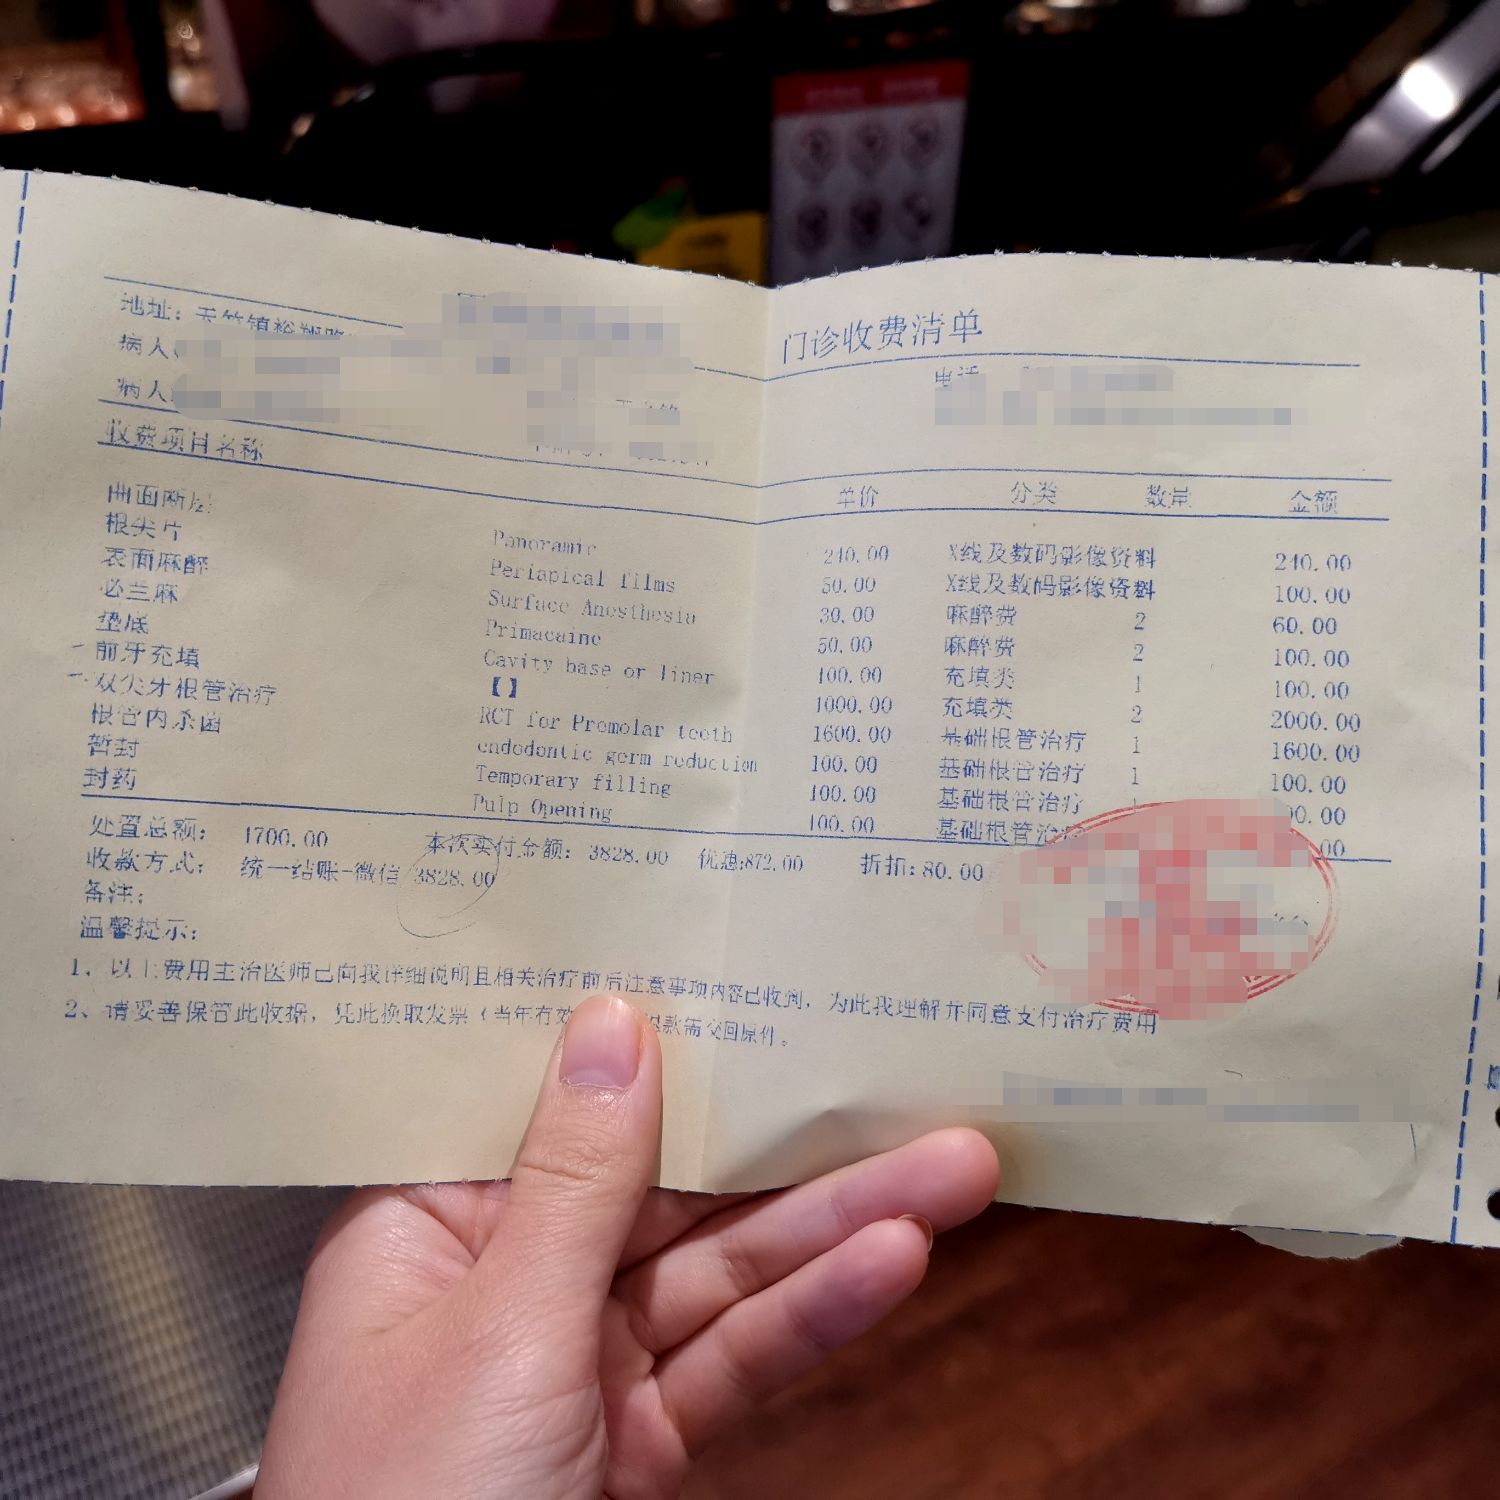 门诊收费清单
地址：天竺镇裕翔路
病人
电话
病人
收费项目名称 单价 分类 数量 金额
曲面断层 Panoramic 240.00 X线及数码影像资料 240.00
根尖片 Periapical films 50.00 X线及数码影像资料 100.00
表面麻醉 Surface Anesthesia 30.00 麻醉费 2 60.00
必兰麻 Primacaine 50.00 麻醉费 2 100.00
垫底 Cavity base or liner 100.00 充填类 1 100.00
前牙充填 【】 1000.00 充填类 2 2000.00
双尖牙根管治疗 RCT for Premolar teeth 1600.00 基础根管治疗 1 1600.00
根管内杀菌 endodontic germ reduction 100.00 基础根管治疗 1 100.00
暂封 Temporary filling 100.00 基础根管治疗 00.00
封药 Pulp Opening 100.00 基础根管治疗 .00
处置总额： 4700.00 本次实付金额：3828.00 优惠:872.00 折扣:80.00
收款方式： 统一结账-微信 3828.00
备注：
温馨提示：
1、以上费用主治医师已向我详细说明且相关治疗前后注意事项内容已收到，为此我理解并同意支付治疗费用
2、请妥善保管此收据，凭此换取发票（当年有效 退款需交回原件。